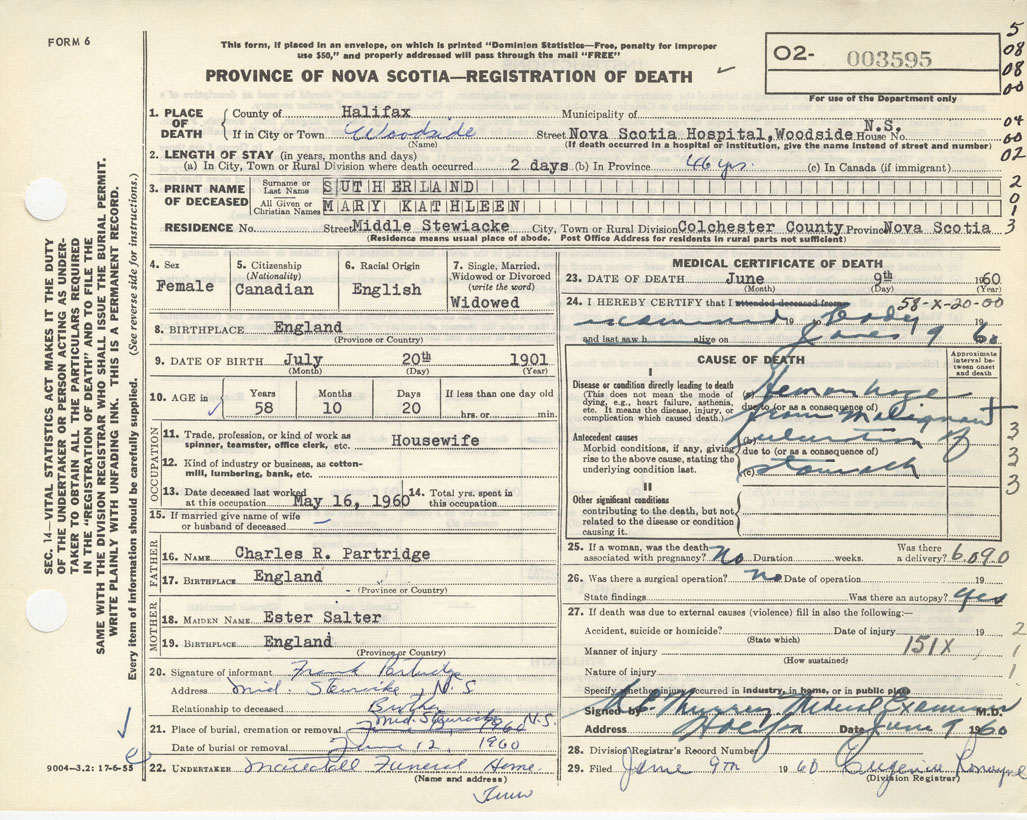 FORM 6
This form, if placed in an envelope, on which is printed "Dominion Statistics—Free, penalty for improper
use $50," and properly addressed will pass through the mail "FREE"
PROVINCE OF NOVA SCOTIA—REGISTRATION OF DEATH
02- 003595
For use of the Department only
5
08
08
00
04
60
02
2
0
1
3
1. PLACE OF DEATH
County of Halifax Municipality of
If in City or Town Woodside Street Nova Scotia Hospital, Woodside N.S. House No.
(Name) (If death occurred in a hospital or institution, give the name instead of street and number)
2. LENGTH OF STAY (in years, months and days)
(a) In City, Town or Rural Division where death occurred 2 days (b) In Province 46 yrs. (c) In Canada (if immigrant)
3. PRINT NAME OF DECEASED
Surname or Last Name SUTHERLAND
All Given or Christian Names MARY KATHLEEN
RESIDENCE No. Street Middle Stewiacke City, Town or Rural Division Colchester County Province Nova Scotia
(Residence means usual place of abode. Post Office Address for residents in rural parts not sufficient)
4. Sex
Female
5. Citizenship
(Nationality)
Canadian
6. Racial Origin
English
7. Single, Married, Widowed or Divorced
(write the word)
Widowed
8. BIRTHPLACE England
(Province or Country)
9. DATE OF BIRTH July 20th 1901
(Month) (Day) (Year)
10. AGE in Years 58 Months 10 Days 20 If less than one day old
hrs. or min.
OCCUPATION
11. Trade, profession, or kind of work as spinner, teamster, office clerk, etc. Housewife
12. Kind of industry or business, as cotton-mill, lumbering, bank, etc.
13. Date deceased last worked at this occupation May 16, 1960 14. Total yrs. spent in this occupation
15. If married give name of wife or husband of deceased –
FATHER
16. NAME Charles R. Partridge
17. BIRTHPLACE England
(Province or Country)
MOTHER
18. MAIDEN NAME Ester Salter
19. BIRTHPLACE England
(Province or Country)
20. Signature of informant Frank Partridge
Address Mid. Stewiacke, N.S
Relationship to deceased Brother
21. Place of burial, cremation or removal Mid. Stewiacke N.S.
Date of burial or removal June 12, 1960
22. UNDERTAKER Funeral Home
(Name and address)
Truro
MEDICAL CERTIFICATE OF DEATH
23. DATE OF DEATH June 9th 1960
(Month) (Day) (Year)
24. I HEREBY CERTIFY that I attended deceased from 58-X-20-00
examined 19 to body 19
and last saw h alive on June 9 60
CAUSE OF DEATH
Approximate interval between onset and death
I
Disease or condition directly leading to death
(This does not mean the mode of dying, e.g., heart failure, asthenia, etc. It means the disease, injury, or complication which caused death.)
Hemorrhage
due to (or as a consequence of)
from malignant
Antecedent causes
Morbid conditions, if any, giving rise to the above cause, stating the underlying condition last.
(b) ulceration of
due to (or as a consequence of)
(c) stomach
3
3
3
3
II
Other significant conditions
contributing to the death, but not related to the disease or condition causing it.
25. If a woman, was the death associated with pregnancy? No Duration weeks. Was there a delivery? 6.090
26. Was there a surgical operation? no Date of operation 19
State findings Was there an autopsy? yes
27. If death was due to external causes (violence) fill in also the following:—
Accident, suicide or homicide? Date of injury 19 2
(State which)
Manner of injury 151X 1
(How sustained)
Nature of injury 1
Specify whether injury occurred in industry, in home, or in public place
Signed by Murray Medical Examiner M.D.
Address Halifax Date June 9 1960
28. Division Registrar's Record Number
29. Filed June 9th 1960 Eugenia
(Division Registrar)
SEC. 14—VITAL STATISTICS ACT MAKES IT THE DUTY
OF THE UNDERTAKER OR PERSON ACTING AS UNDER-
TAKER TO OBTAIN ALL THE PARTICULARS REQUIRED
IN THE "REGISTRATION OF DEATH" AND TO FILE THE
SAME WITH THE DIVISION REGISTRAR WHO SHALL ISSUE THE BURIAL PERMIT.
WRITE PLAINLY WITH UNFADING INK. THIS IS A PERMANENT RECORD.
Every item of information should be carefully supplied. (See reverse side for instructions.)
9004-3.2: 17-6-55